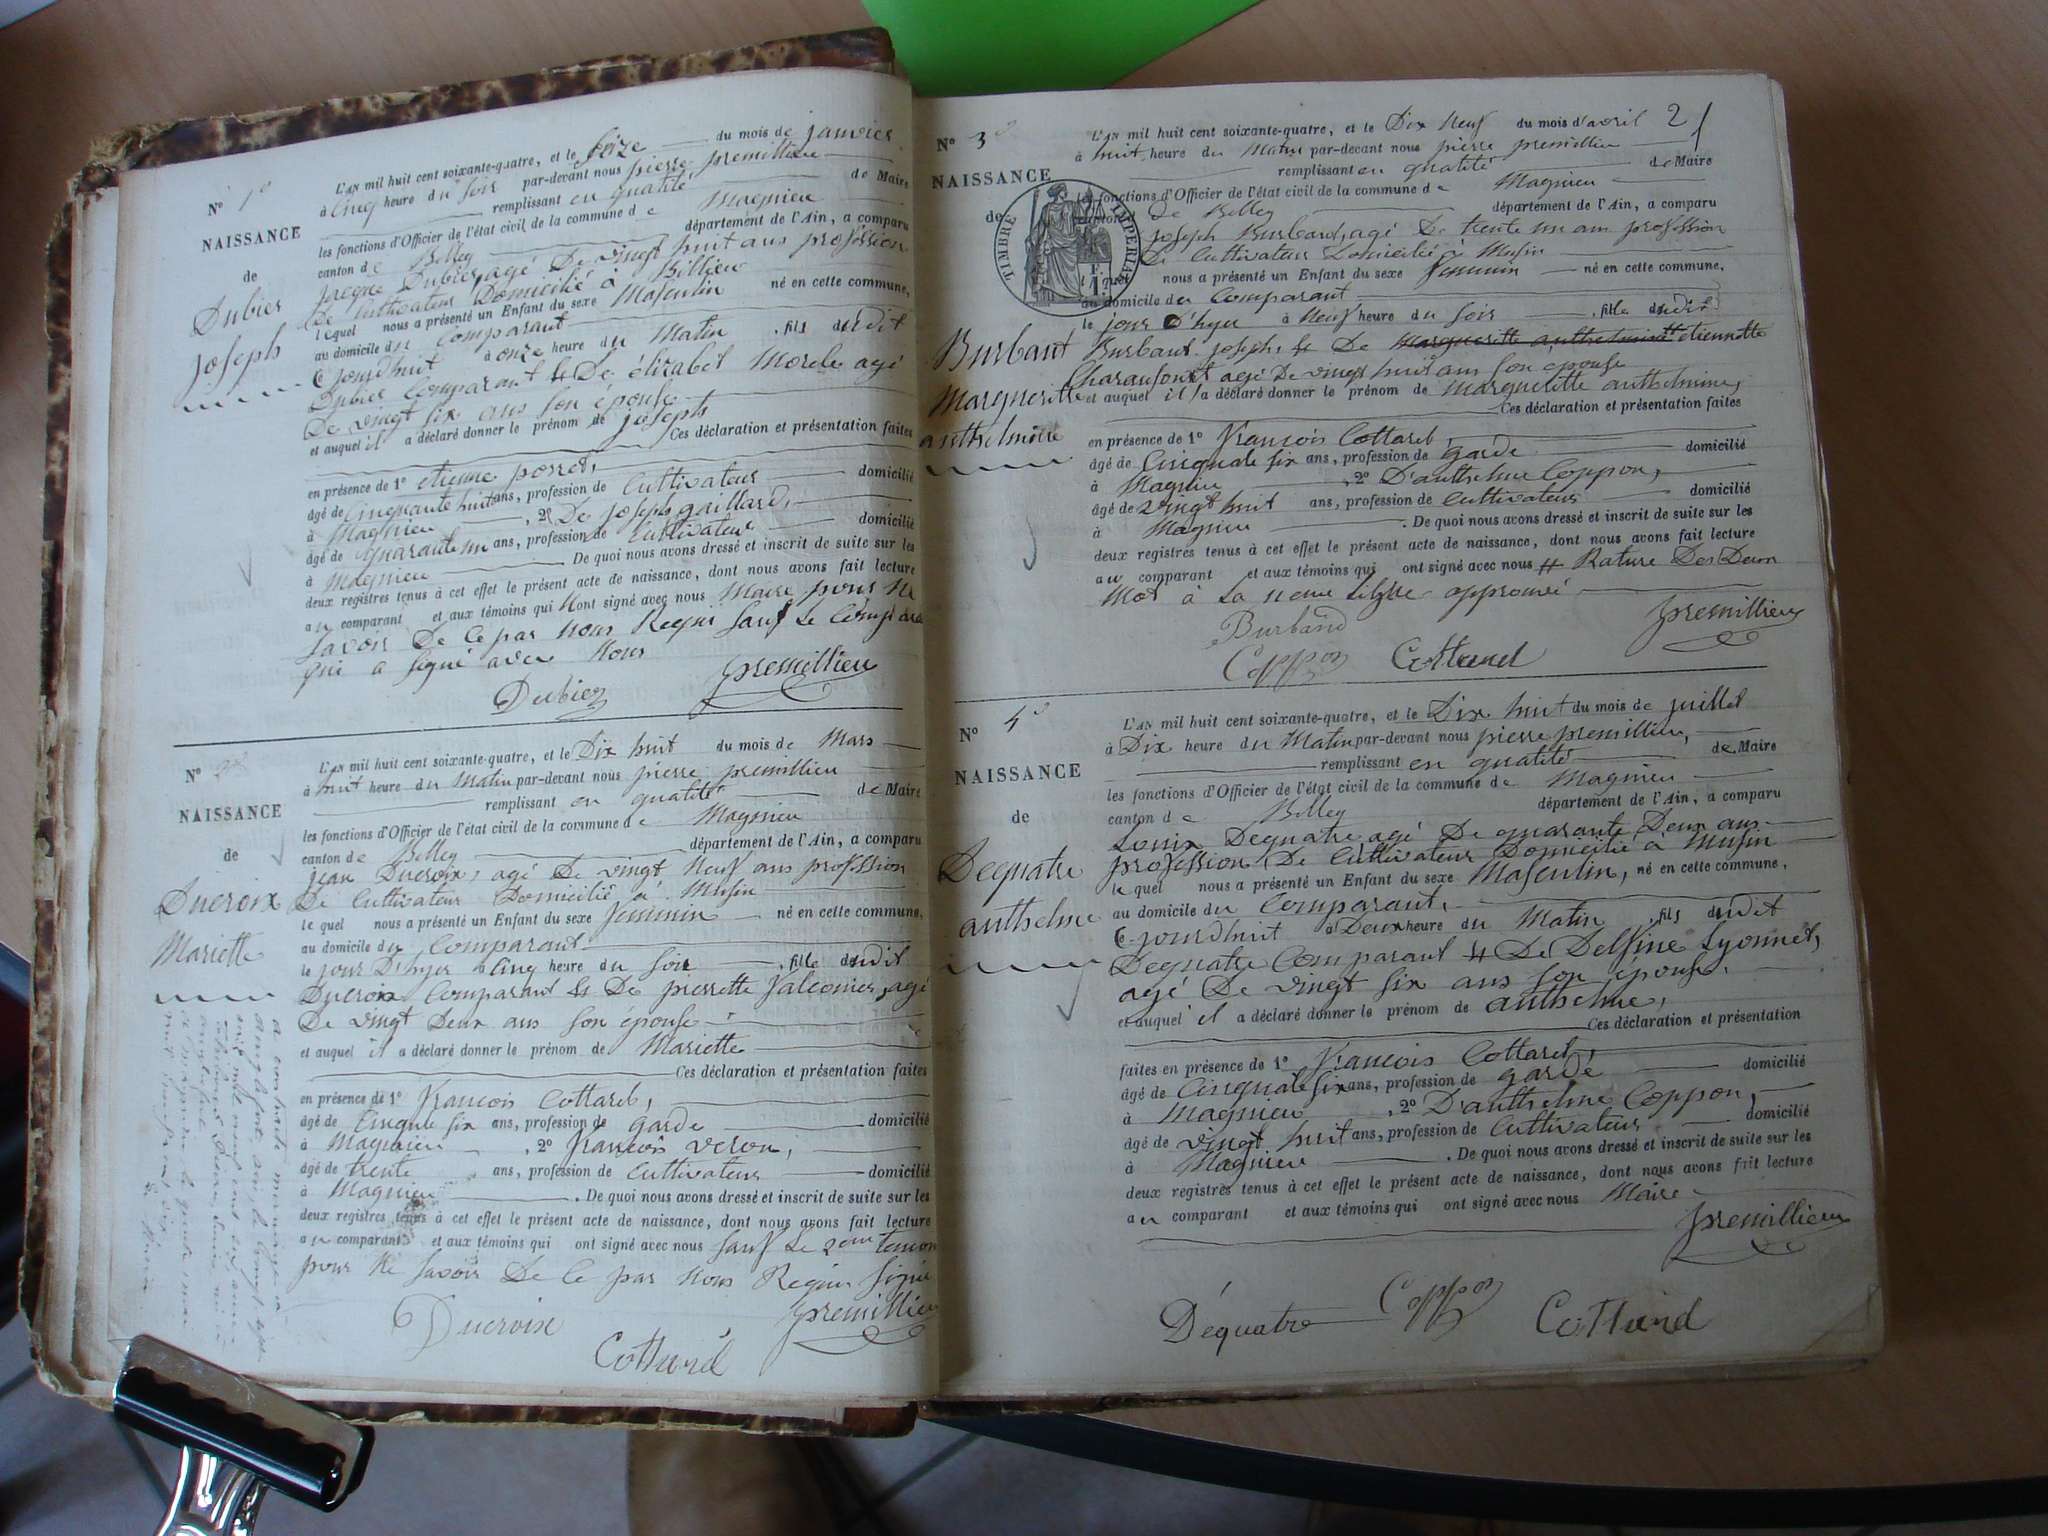 N° 1
NAISSANCE
de
Dubier
Joseph
L'AN mil huit cent soixante-quatre, et le seize du mois de janvier
à cinq heure du soir par-devant nous pierre premillieu
remplissant en qualité de Maire
les fonctions d'Officier de l'état civil de la commune de Magnieu
canton de Belley département de l'Ain, a comparu
Jacque Dubier, agé De vingt huit ans profession
De Cultivateur Domicilié à Billieu
lequel nous a présenté un Enfant du sexe Masculin né en cette commune,
au domicile du Comparant
C jourdhuit à onze heure du Matin, fils dudit
Dubier Comparant & De élizabet Morele agé
De vingt six ans son épouse
et auquel il a déclaré donner le prénom de joseph
Ces déclaration et présentation faites
en présence de 1° etienne porret,
âgé de Cinquante huit ans, profession de Cultivateur domicilié
à Magnieu, 2° De joseph gaillard,
âgé de quarante un ans, profession de Cultivateur domicilié
à Magnieu. De quoi nous avons dressé et inscrit de suite sur les
deux registres tenus à cet effet le présent acte de naissance, dont nous avons fait lecture
au comparant et aux témoins qui n'ont signé avec nous Maire pour ne
savoir De Ce par nous Requi sauf Le Compara
qui a signé avec nous
Dubier premillieu
N° 2
NAISSANCE
de
Ducroix
Mariette
L'AN mil huit cent soixante-quatre, et le Dix huit du mois de Mars
à huit heure du Matin par-devant nous pierre premillieu
remplissant en qualité de Maire
les fonctions d'Officier de l'état civil de la commune de Magnieu
canton de Belley département de l'Ain, a comparu
jean Ducroix, agé De vingt neuf ans profession
De Cultivateur Domicilié à Musin
lequel nous a présenté un Enfant du sexe feminin né en cette commune,
au domicile du Comparant
le jour D'hyer à Cinq heure du soir, fille dudit
Ducroix Comparant & De pierrette falconier, agé
De vingt Deux ans son épouse
et auquel il a déclaré donner le prénom de Mariette
Ces déclaration et présentation faites
en présence de 1° François Cottard,
âgé de Cinquate six ans, profession de garde domicilié
à Magnieu, 2° françois veron,
âgé de trente ans, profession de Cultivateur domicilié
à Magnieu. De quoi nous avons dressé et inscrit de suite sur les
deux registres tenus à cet effet le présent acte de naissance, dont nous avons fait lecture
au comparant et aux témoins qui ont signé avec nous sauf Le 2eme temoin
pour ne savoir De Ce par nous Requi signé
Ducroix Cottard premillieu
a contracté mariage à
2
N° 3
NAISSANCE
de
TIMBRE IMPERIAL
1 F.
Burbant
Marguerite
anthelmine
L'AN mil huit cent soixante-quatre, et le Dix neuf du mois d'avril
à huit heure du Matin par-devant nous pierre premillieu
remplissant en qualité de Maire
les fonctions d'Officier de l'état civil de la commune de Magnieu
canton De Belley département de l'Ain, a comparu
joseph Burbant, agé De trente un ans profession
De Cultivateur Domicilié à Musin
lequel nous a présenté un Enfant du sexe feminin né en cette commune,
au domicile du Comparant
le jour D'hyer à Neuf heure du soir, fille dudit
Burbant joseph, & De marguerite anthelmine etiennette
agé De vingt huit ans son épouse
et auquel il a déclaré donner le prénom de Marguerite anthelmine,
Ces déclaration et présentation faites
en présence de 1° François Cottard,
âgé de Cinquate six ans, profession de garde domicilié
à Magnieu, 2° D'anthelme Coppon,
âgé de vingt huit ans, profession de Cultivateur domicilié
à Magnieu. De quoi nous avons dressé et inscrit de suite sur les
deux registres tenus à cet effet le présent acte de naissance, dont nous avons fait lecture
au comparant et aux témoins qui ont signé avec nous # Rature Des Deux
Mot à La neme Ligne approuvé
Burband premillieu
Coppon Cottard
N° 4
NAISSANCE
de
Dequatre
anthelme
L'AN mil huit cent soixante-quatre, et le Dix huit du mois de juillet
à Dix heure du Matin par-devant nous pierre premillieu,
remplissant en qualité de Maire
les fonctions d'Officier de l'état civil de la commune de Magnieu
canton de Belley département de l'Ain, a comparu
Louis Dequatre, agé De quarante Deux ans
profession De Cultivateur Domicilié à Musin
lequel nous a présenté un Enfant du sexe Masculin, né en cette commune,
au domicile du Comparant,
C jourdhuit à Deux heure du Matin, fils dudit
Dequatre Comparant & De Delfine Lyonnet,
agé De vingt six ans son épouse.
et auquel il a déclaré donner le prénom de anthelme,
Ces déclaration et présentation
faites en présence de 1° François Cottard,
âgé de Cinquate six ans, profession de garde domicilié
à Magnieu, 2° D'anthelme Coppon,
âgé de vingt huit ans, profession de Cultivateur domicilié
à Magnieu. De quoi nous avons dressé et inscrit de suite sur les
deux registres tenus à cet effet le présent acte de naissance, dont nous avons fait lecture
au comparant et aux témoins qui ont signé avec nous Maire
premillieu
Déquatre Coppon Cottard